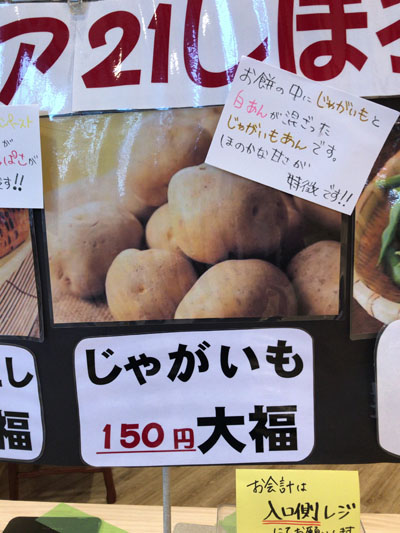 ア21しほ
お餅の中にじゃがいもと
白あんが混ざった
じゃがいもあんです。
ほのかな甘さが
特徴です!!
ペースト
が
っぱさが
です!!
じゃがいも
150円大福
し
福
お会計は
入口側レジ
にてお願いします